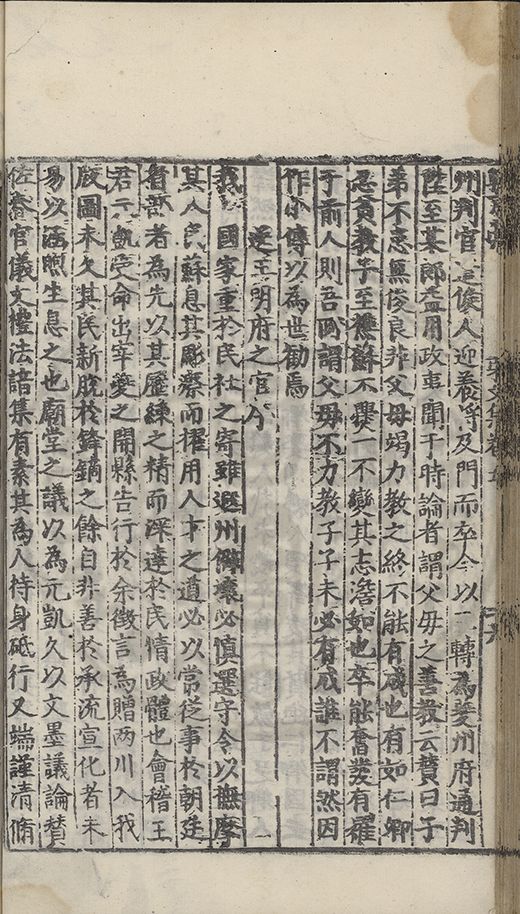 州判官宜俊人迎養將及門而卒今以二轉為夔州府通判
陞至某郎益用政事聞于時論者謂父母之善教云贊曰子
弟不患無俊良弁父母竭力教之終不能有成也有如仁卿
忍貧教子至襟解不擾一不變其志澹如也卒能奮發有羅
于前人則吾所謂父母不力教子子未必有成誰不謂然因
作小傳以為世勸焉
送王明府之官
我 國家重於民社之寄雖遐州僻壤必慎選守令以撫摩
其人民蘇息其彫瘵而擢用人才之道必以常從事於朝廷
省部者為先以其歷練之精而深達於民情政體也會稽王
君元凱受命出宰夔之開縣告行於余徵言為贈兩川入我
版圖未久其民新脫於鋒鏑之餘自非善於承流宣化者未
易以涵煦生息之也廟堂之議以為元凱久以文墨議論贊
佐賽官儀文禮法諳集有素其為人持身砥行又端謹清脩